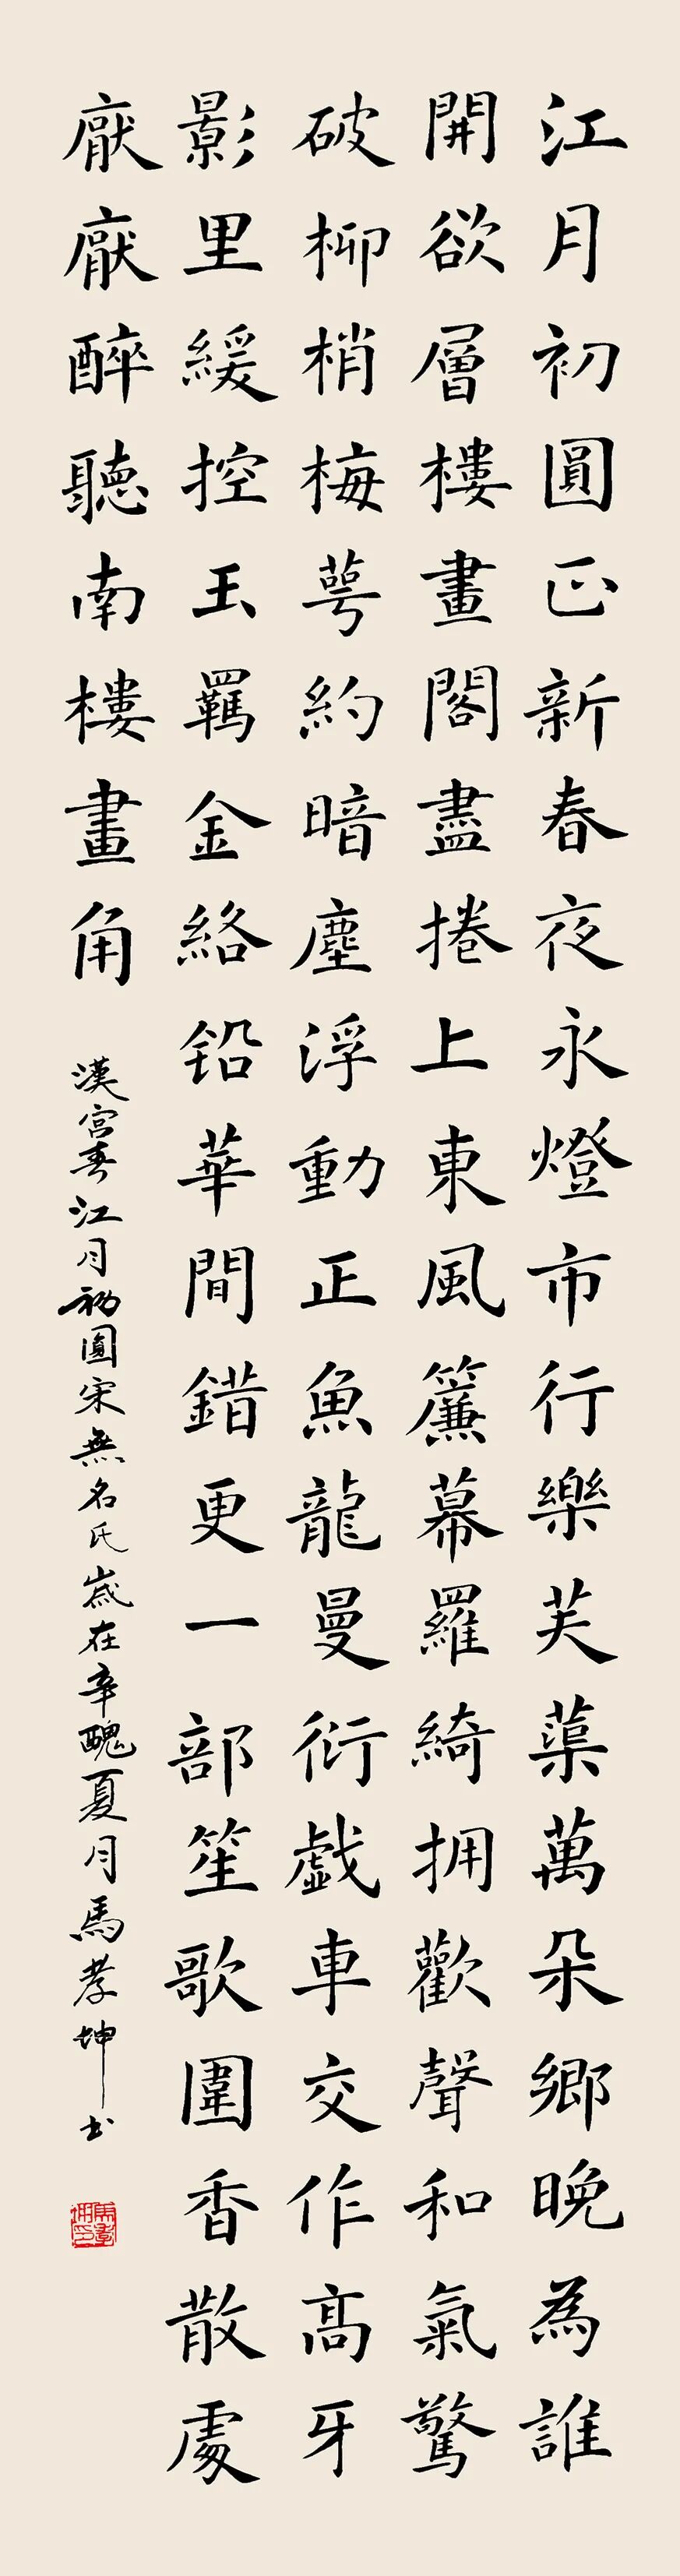 江月初圓正新春夜永燈市行樂芙蕖萬朵鄉晚為誰
開欲層樓畫閣盡捲上東風簾幕羅綺拥歡聲和氣驚
破柳梢梅萼約暗塵浮動正魚龍曼衍戱車交作高牙
影里緩控玉羈金絡铅華間錯更一部笙歌圍香散處
厭厭醉聽南樓畫角
漢宮春江月初圓宋無名氏歲在辛醜夏月馬孝坤书